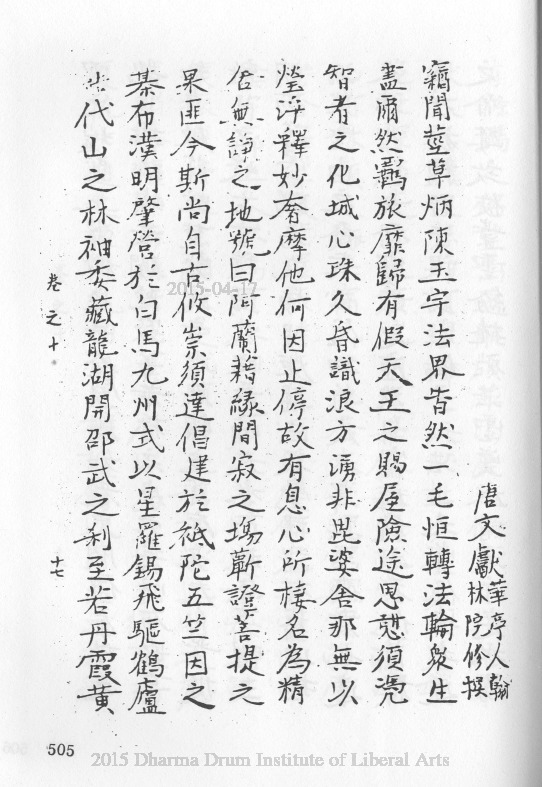 唐文獻華亭人翰
林院修撰
竊聞莖草炳陳玉宇法界皆然一毛恒轉法輪衆生
盡爾然羈旅靡歸有假天王之賜屋險途思憇須凴
智者之化城心珠久昏識浪方湧非毘婆舍那無以
瑩浮釋妙奢摩他何因止停故有息心所棲名為精
舍無諍之地號曰阿蘭藉緣間寂之塲蘄證菩提之
果匪今斯尚自古攸崇須達倡建於祇陀五竺因之
棊布漢明肇營於白馬九州式以星羅錫飛驅鶴廬
代山之林袖委藏龍湖開邵武之刹至若丹霞黄
卷之十
十七
505
2015-04-17
2015 Dharma Drum Institute of Liberal Arts